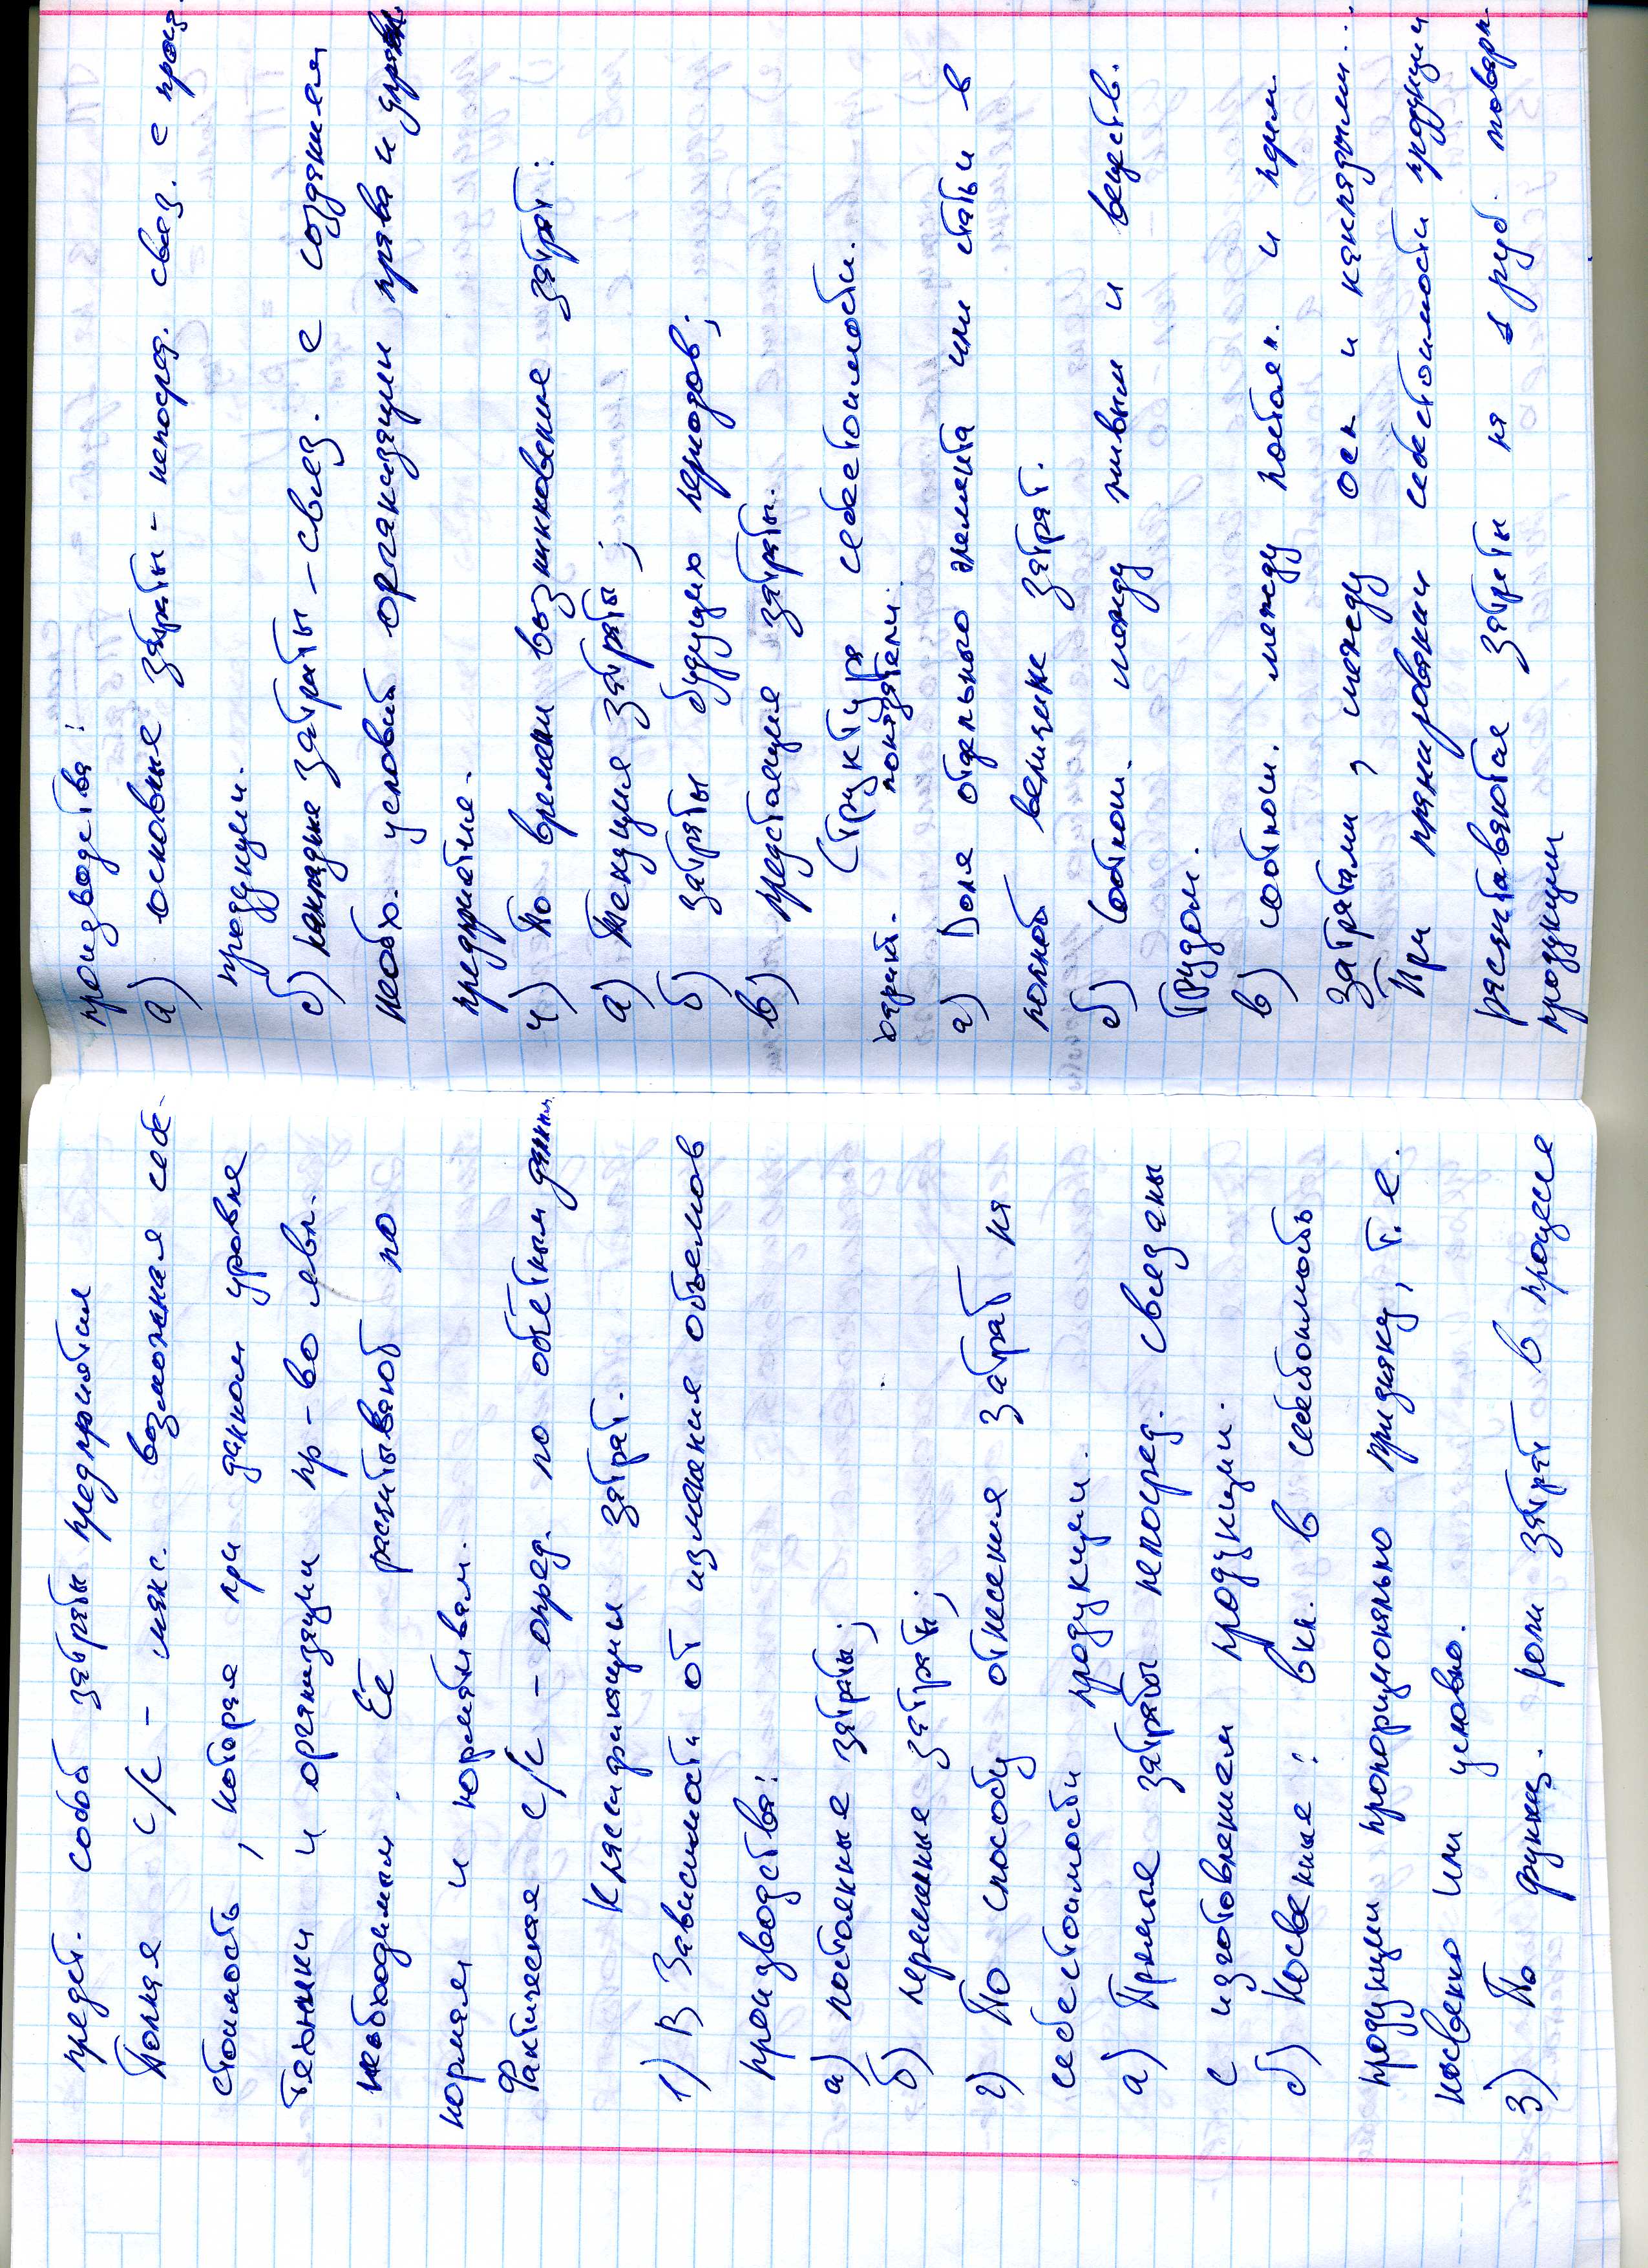 предст. собой затраты предприятия
Полная с/с - макс. возможная себе-
стоимость, которая при данном уровне
техники и организации пр-во явл.
необходимым. Её расчитывают по
нормам и нормативам.
Фактическая с/с - опред. по обсётным данным
Классификация затрат.
1) В зависимости от изменения объемов
производства:
а) постоянные затраты;
б) переменные затраты;
2) По способу отнесения затрат на
себестоимости продукции.
а) Прямые затраты непосред. связаны
с изготовлением продукции.
б) Косвенные: вкл. в себестоимость
продукции пропорционально признаку, т.е.
косвенно или условно.
3) По функц. роли затрат в процессе
производства:
а) основные затраты - непосред. связ. с произ.
продукции.
б) накладные затраты - связ. с созданием
необх. условий организации прва и управл.
предприятие.
4) По времени возникновение затрат:
а) Текущие затраты;
б) затраты будущих периодов;
в) предстоящие затраты.
Структура себестоимости.
показатели:
а) Доля отдельного элемента или статьи в
полной величине затрат.
б) Соотнош. между живым и веществ.
трудом.
в) соотнош. между постоян. и перем
затратами, между осн и накладными...
При планировании себестоимости продукции
расчитавяются затреты на 1 руб. товарн.
продукции